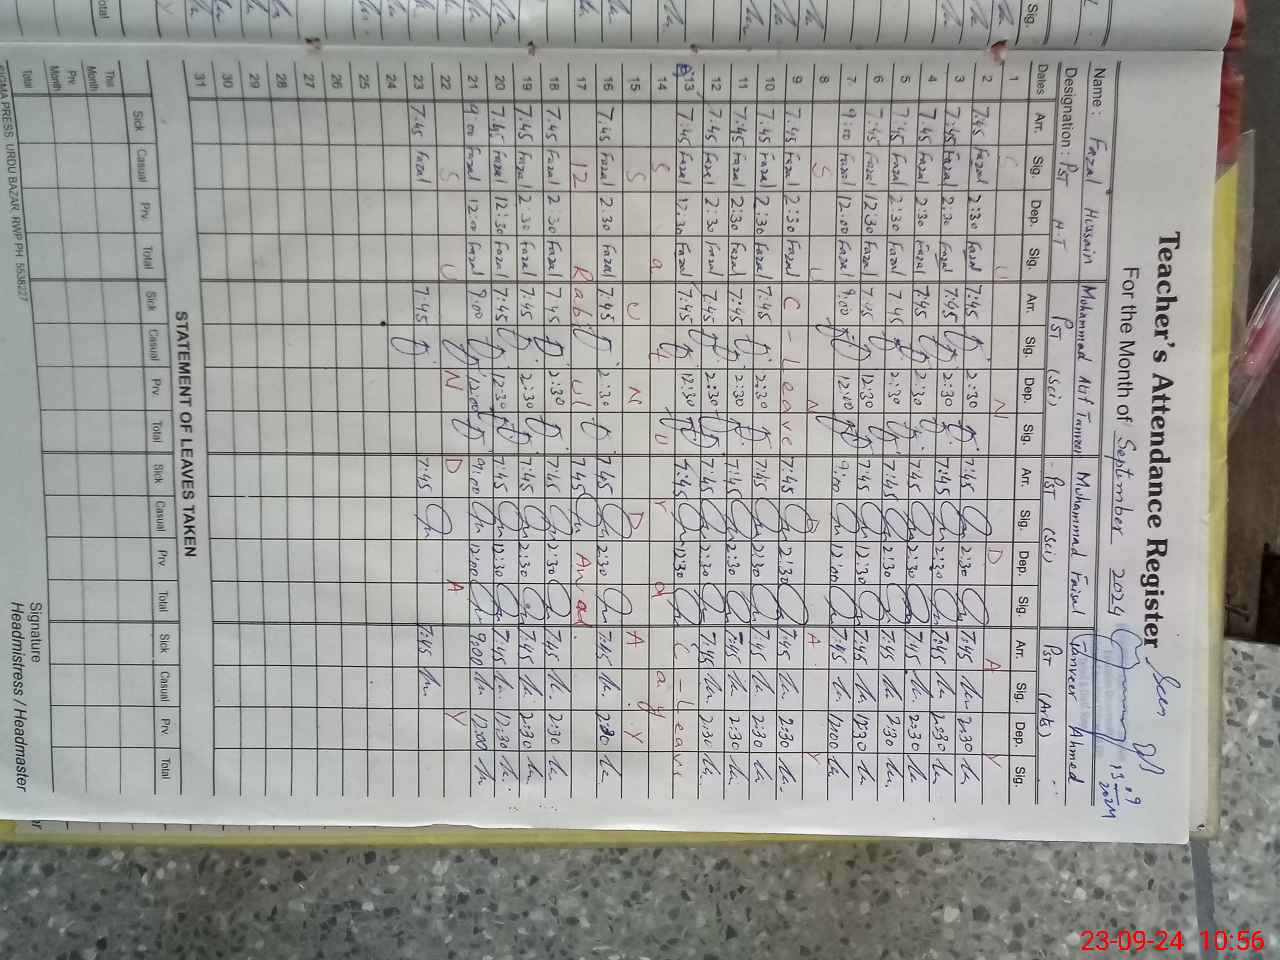 Teacher's Attendance Register
For the Month of September 2024
Seen
13.9
2024
Name : Fazal Hussain Mohammad Atif Tanveer Muhammad Faisal Tanveer Ahmed
Designation : PST H.T PST (Sci) PST (Sci) PST (Arts)
Dates Arr. Sig. Dep. Sig. Arr. Sig. Dep. Sig. Arr. Sig. Dep. Sig. Arr. Sig. Dep. Sig.
1 S U N D A Y
2 7:45 Fazal 2:30 Fazal 7:45 2:30 7:45 2:30 7:45 2:30
3 7:45 Fazal 2:30 Fazal 7:45 2:30 7:45 2:30 7:45 2:30
4 7:45 Fazal 2:30 Fazal 7:45 2:30 7:45 2:30 7:45 2:30
5 7:45 Fazal 2:30 Fazal 7:45 2:30 7:45 2:30 7:45 2:30
6 7:45 Fazal 12:30 Fazal 7:45 12:30 7:45 12:30 7:45 12:30
7 9:00 Fazal 12:00 Fazal 9:00 12:00 9:00 12:00 7:45 12:00
8 S U N D A Y
9 7:45 Fazal 2:30 Fazal C - Leave 7:45 2:30 7:45 2:30
10 7:45 Fazal 2:30 Fazal 7:45 2:30 7:45 2:30 7:45 2:30
11 7:45 Fazal 2:30 Fazal 7:45 2:30 7:45 2:30 7:45 2:30
12 7:45 Fazal 2:30 Fazal 7:45 2:30 7:45 2:30 7:45 2:30
13 7:45 Fazal 12:30 Fazal 7:45 12:30 7:45 12:30 C - Leave
14 S a t u r d a y
15 S U N D A Y
16 7:45 Fazal 2:30 Fazal 7:45 2:30 7:45 2:30 7:45 2:30
17 12 Rabi Ul 7:45 Awal.
18 7:45 Fazal 2:30 Fazal 7:45 2:30 7:45 2:30 7:45 2:30
19 7:45 Fazal 2:30 Fazal 7:45 2:30 7:45 2:30 7:45 2:30
20 7:45 Fazal 12:30 Fazal 7:45 12:30 7:45 12:30 7:45 12:30
21 9:00 Fazal 12:00 Fazal 9:00 12:00 9:00 12:00 9:00 12:00
22 S U N D A Y
23 7:45 Fazal 7:45 7:45 7:45
24
25
26
27
28
29
30
31
STATEMENT OF LEAVES TAKEN
Sick Casual Prv. Total Sick Casual Prv Total Sick Casual Prv Total Sick Casual Prv Total
This Month
Prv. Month
Total
Signature
Headmistress / Headmaster
SIGMA PRESS URDU BAZAR RWP PH 5538227
23-09-24 10:56